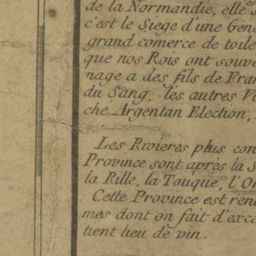 de la Normandie, elle
c'est le Siege d'une Gen
grand comerce de toile
que nos Rois ont souv
nage a des fils de Fran
du Sang, les autres V
che, Argentan Election,
Les Rivieres plus con
Province sont apres la S
la Rille, la Touque, l'Or
Cette Province est ren
mes dont on fait d'exce
tient lieu de vin.